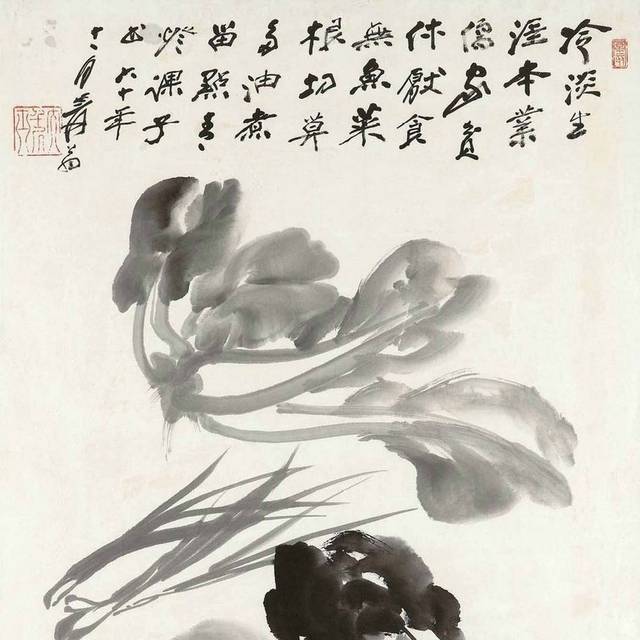 冷淡生
涯本業
儒家貧
休厭食
無魚菜
根切莫
多油煮
留點青
燈課子
書六十年
十二月爰翁